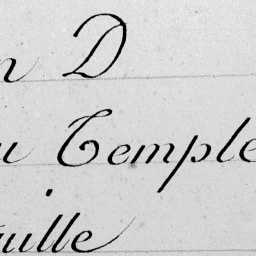 n D
u Temple
uille